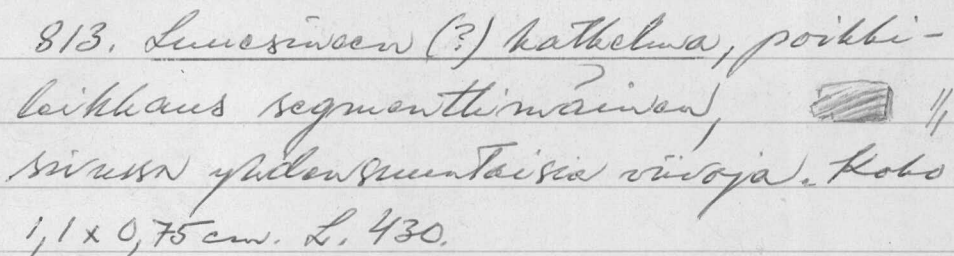 813. Luuesineen (?) katkelma, poikki-
leikkaus segmenttimäinen,
sivussa yhdensuuntaisia viivoja. Koko
1,1 x 0,75 cm. L. 430.